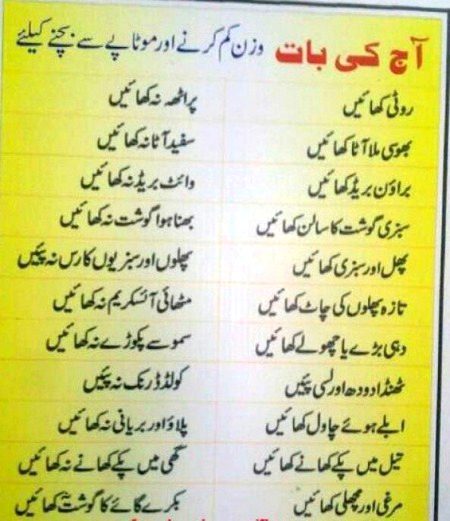 آج کی بات وزن کم کرنے اور موٹاپے سے بچنے کیلئے
روٹی کھائیں پراٹھہ نہ کھائیں
بھوسی ملا آٹا کھائیں سفید آٹا نہ کھائیں
براؤن بریڈ کھائیں وائٹ بریڈ نہ کھائیں
سبزی گوشت کا سالن کھائیں بھنا ہوا گوشت نہ کھائیں
پھل اور سبزی کھائیں پھلوں اور سبزیوں کا رس نہ پئیں
تازہ پھلوں کی چاٹ کھائیں مٹھائی آئسکریم نہ کھائیں
دہی بڑے یا چھولے کھائیں سموسے پکوڑے نہ کھائیں
ٹھنڈا دودھ اور لسی پئیں کولڈ ڈرنک نہ پئیں
ابلے ہوئے چاول کھائیں پلاؤ اور بریانی نہ کھائیں
تیل میں پکے کھانے کھائیں گھی میں پکے کھانے نہ کھائیں
مرغی اور مچھلی کھائیں بکرے گائے کا گوشت کھائیں